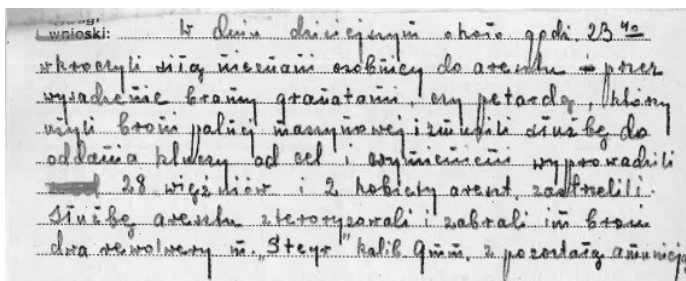 Uwagi
i wnioski: W dniu dzisiejszym około godz. 23 40
wkroczyli się nieznani osobnicy do aresztu przez
wysadzenie bramy granatami, czy petardą, którzy
użyli broni palnej maszynowej i zmusili służbę do
oddania kluczy od cel i wyprowadzili
28 więźniów i 2 kobiety areszt. zastrzelili.
Służbę aresztu sterroryzowali i zabrali im broń
dwa rewolwery m. „Steyr" kalib 9mm. z pozostałą amunicją